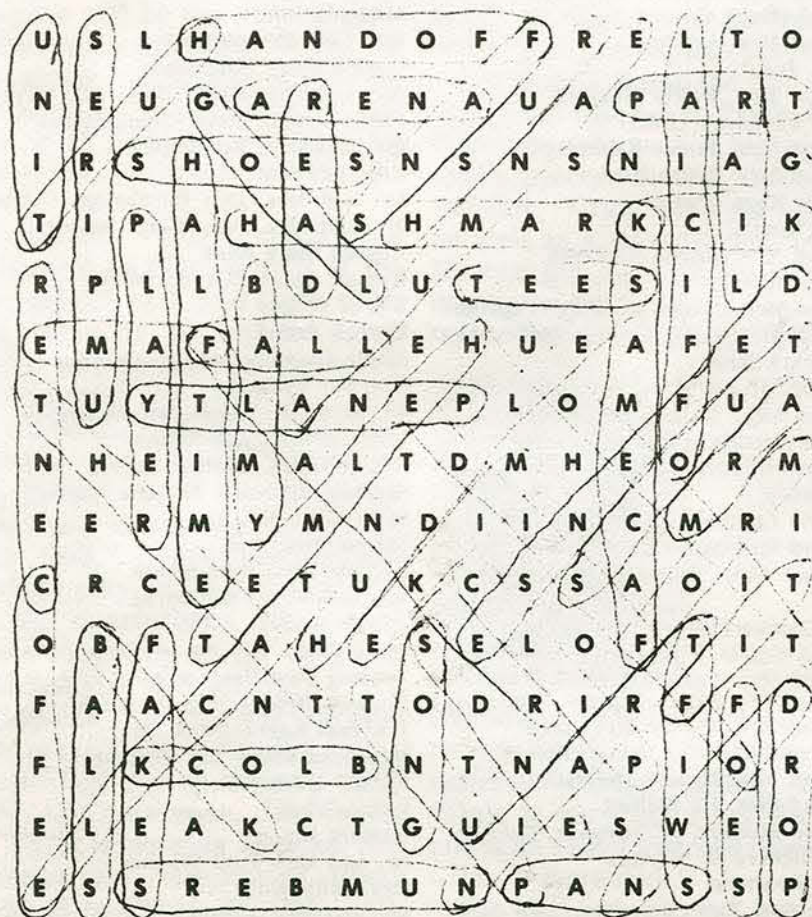 U S L H A N D O F F R E L T O
N E U G A R E N A U A P A R T
I R S H O E S N S N S N I A G
T I P A H A S H M A R K C I K
R P L L B D L U T E E S I L D
E M A F A L L E H U E A F E T
T U Y T L A N E P L O M F U A
N H E I M A L T D M H E O R M
E E R M Y M N D I I N C M R I
C R C E E T U K C S S A O I T
O B F T A H E S E L O F T I T
F A A C N T T O D R I R F F D
F L K C O L B N T N A P I O R
E L E A K C T G U I E S W E O
E S S R E B M U N P A N S S P